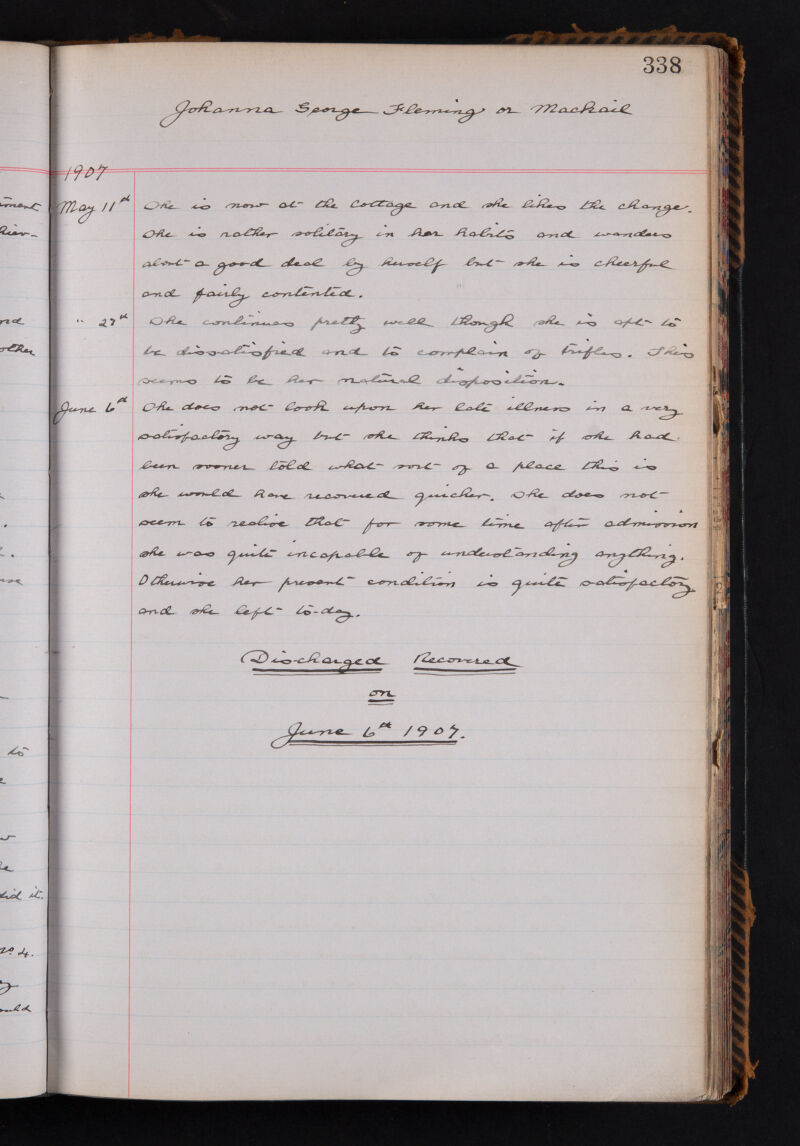 338
Johanna George Fleming or Mackail
1907
May 11th She is now at the Cottage and she likes the change.
She is rather solitary in her habits and wanders
about a good deal by herself but she is cheerful
and fairly contented.
" 27th She continues pretty well though she is apt to
be dissatisfied and to complain of trifles. This
seems to be her natural disposition.
June 6th She does not look upon her late illness in a very
satisfactory way but she thinks that if she had
been sooner told what sort of a place this is
she would have recovered quicker. She does not
seem to realise that for some time after admission
she was quite incapable of understanding anything.
Otherwise her present condition is quite satisfactory
and she left to-day.
Discharged Recovered
on
June 6th 1907.
other
to
did it.
No 4.